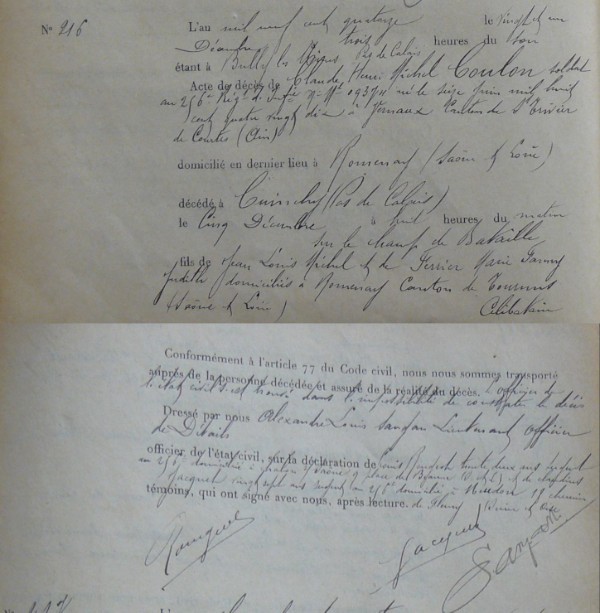 N° 216
L'an mil neuf cent quatorze le vingt et un
Décembre trois heures du soir
étant à Bully les Mines Pas de Calais
Acte de décès de Claude, Henri Michel Coulon soldat
au 256e Rég. d'Inf.ie né le seize juin mil huit
cent quatre vingt dix à Vernoux Canton de St Trivier
de Courtes (Ain)
domicilié en dernier lieu à Romenay (Saône et Loire)
décédé à Cuinchy (Pas de Calais)
le cinq Décembre à huit heures du matin
sur le champ de Bataille
fils de Jean Louis Michel et de Ferrier Marie Fanny
domiciliés à Romenay Canton de Tournus
(Saône et Loire) Célibataire
Conformément à l'article 77 du Code civil, nous nous sommes transporté
auprès de la personne décédée et assuré de la réalité du décès. L'officier de
l'état civil s'est trouvé dans l'impossibilité de constater le décès
Dressé par nous Alexandre Louis Lieutenant officier
de Détails
officier de l'état civil, sur la déclaration de Louis trente deux ans
au 256e domicilié à place et de
Jacquet vingt sept ans au 256e domicilié à Meudon 15 chemin
témoins, qui ont signé avec nous, après lecture. de Fleury (Seine et Oise
Jacquet